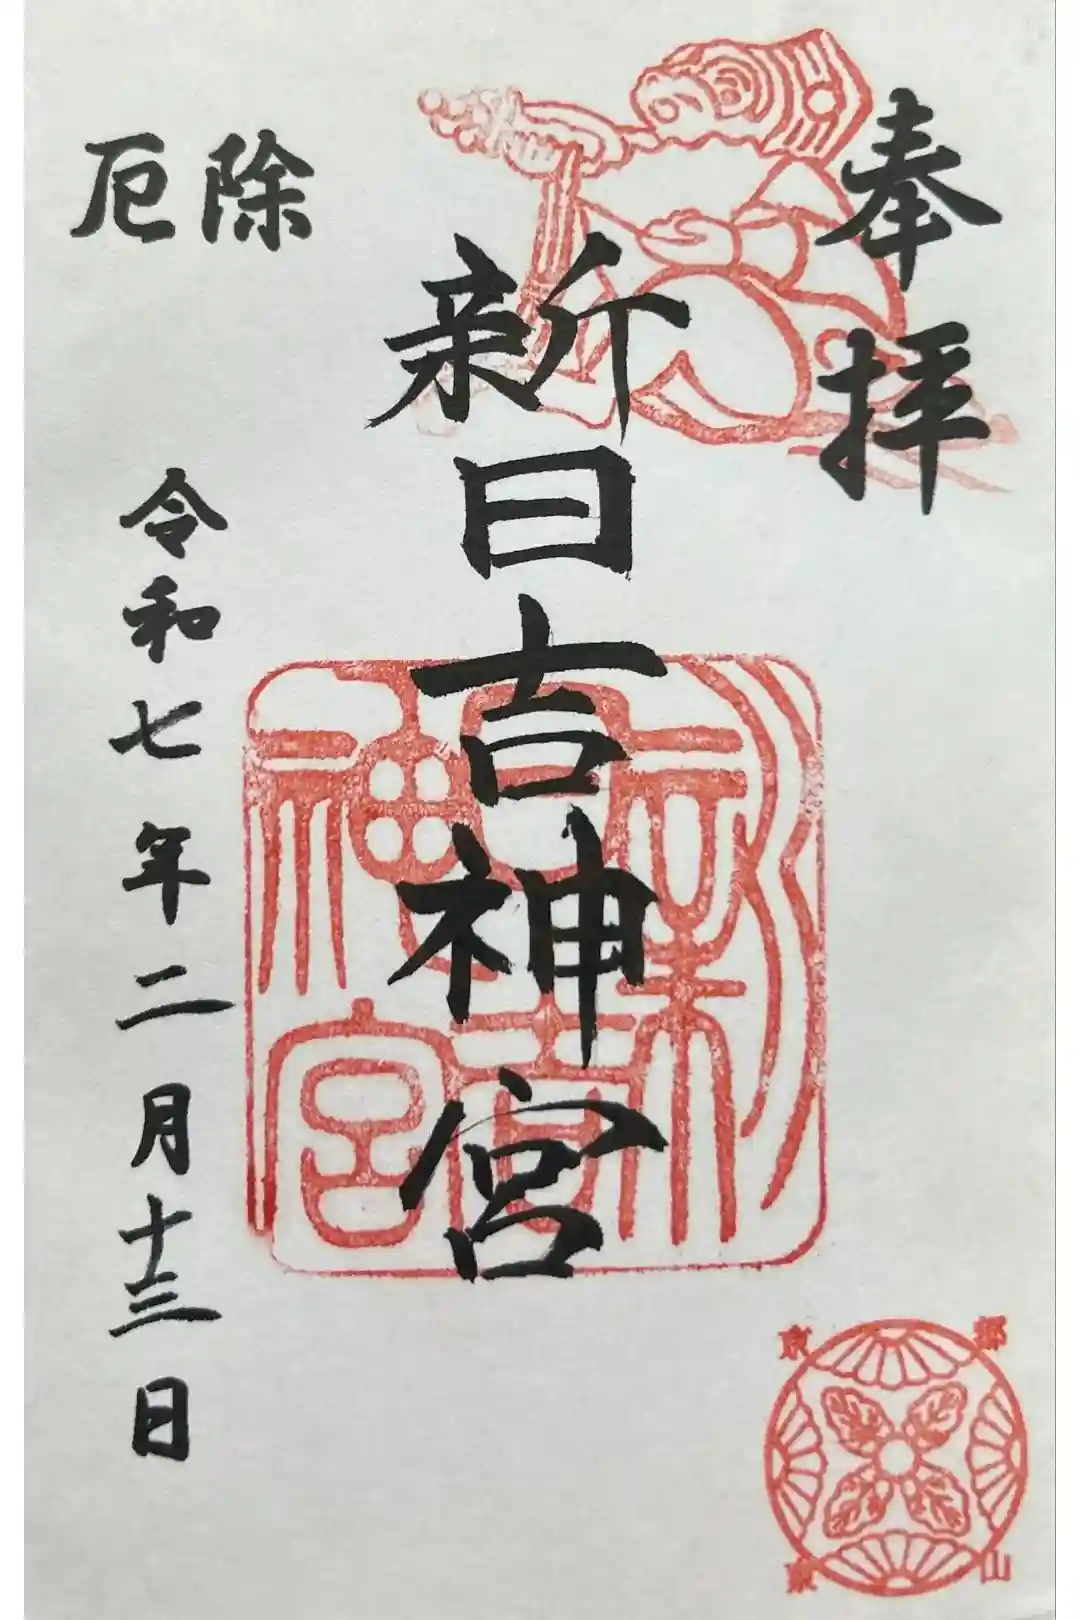 奉拝
新日吉神宮
除
厄
令和七年二月十三日
新日吉神宮
京都
東山